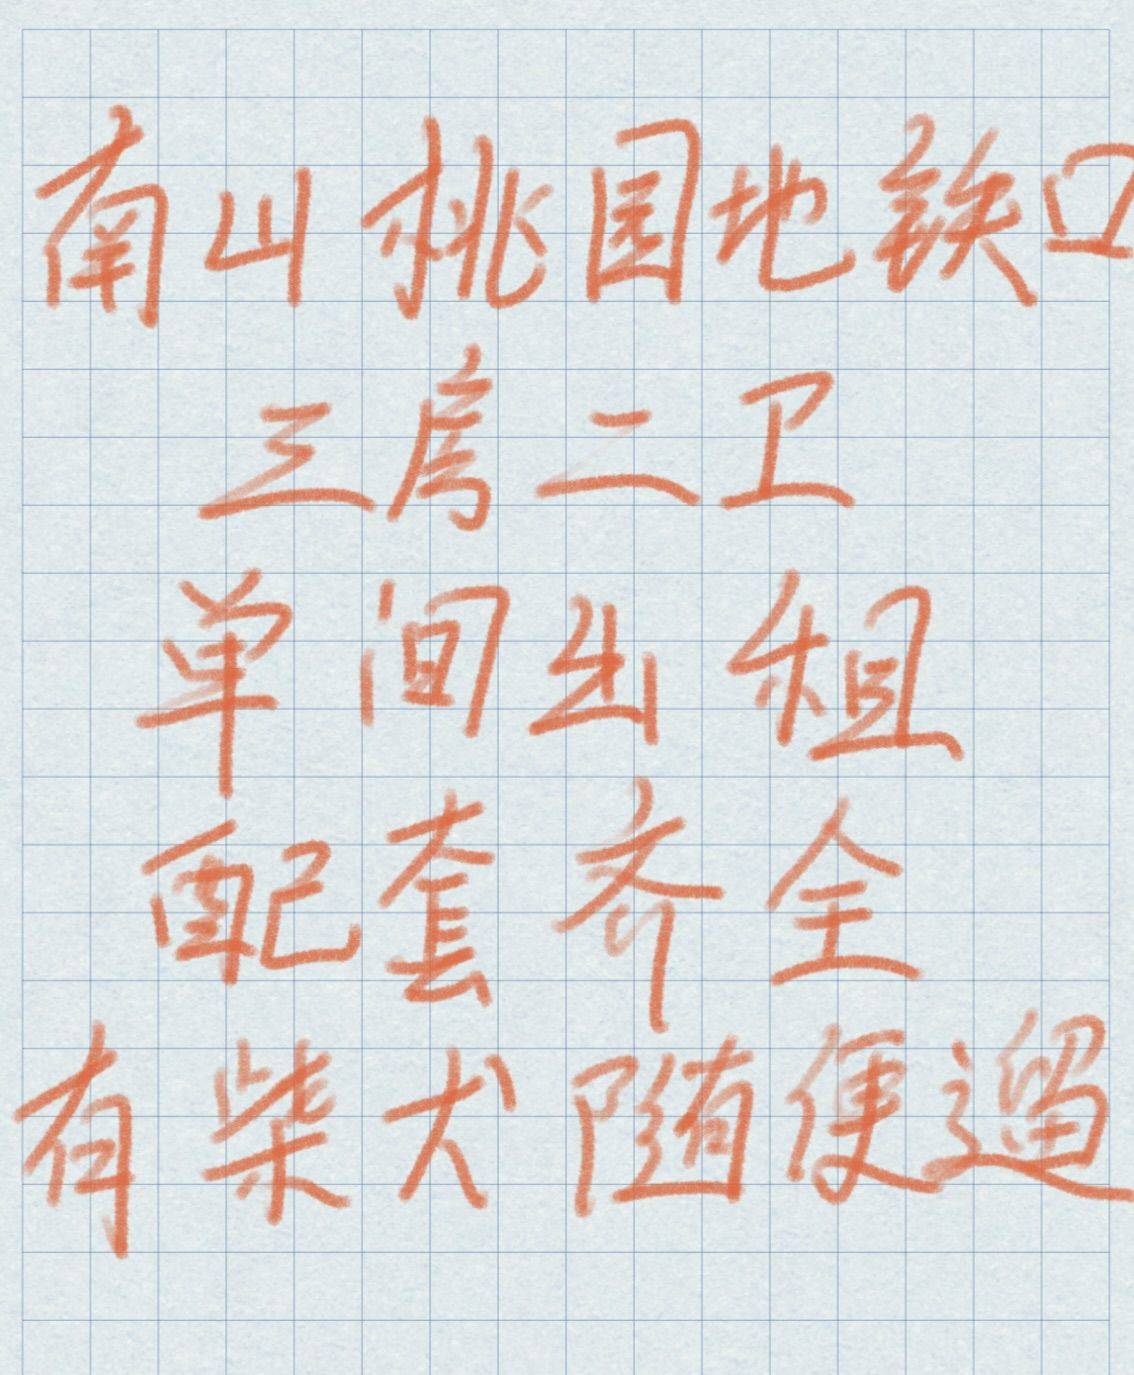 南山桃园地铁口
三房二卫
单间出租
配套齐全
有柴犬随便遛